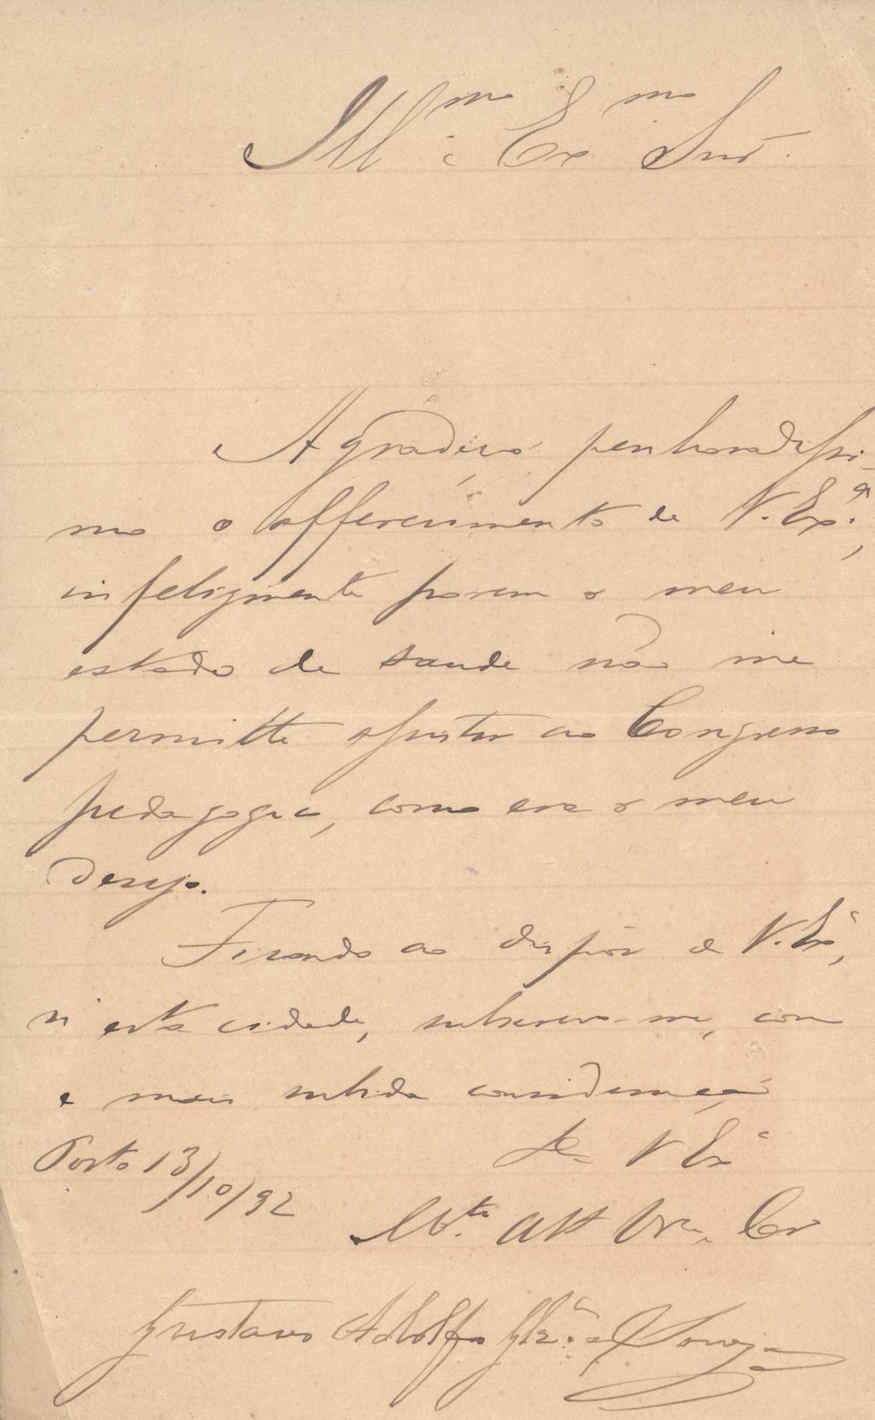 Ill.mo e Ex.mo Snr.
Agradeço penhoradissi-
mo o offerecimento de V. Ex.ª,
infelizmente porem o meu
estado de saude não me
permitte assistir ao Congresso
pedagogico, como era o meu
desejo.
Ficando ao dispôr de V. Exª,
n'esta cidade, subscrevo-me, com
a mais subida consideração
De V Exª
Porto 13/10/92
M.to Att Vr. Cr
Gustavo Adolfo Glz. de Souza